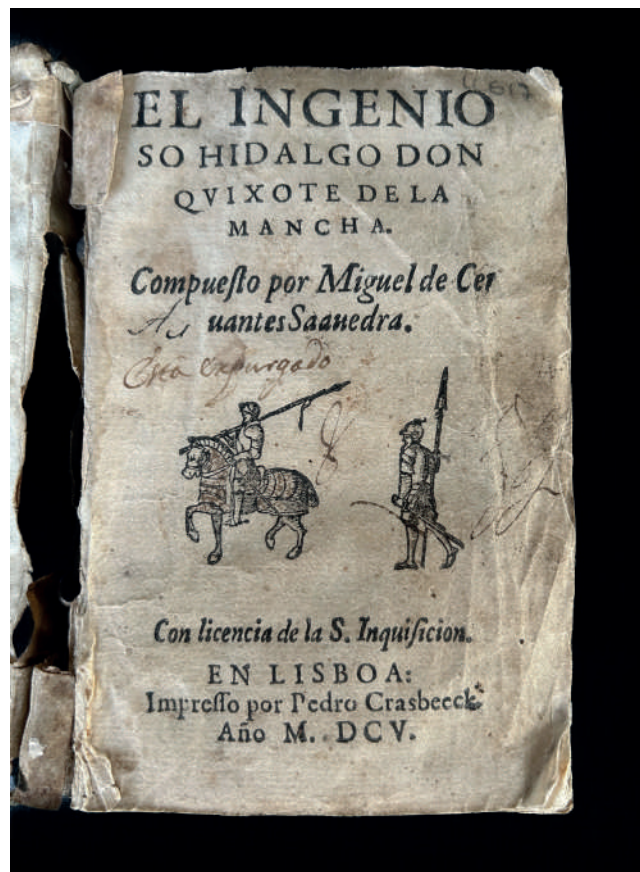 EL INGENIO
SO HIDALGO DON
QVIXOTE DE LA
MANCHA.
Compueſto por Miguel de Cer
uantes Saauedra.
Esta expurgado
Con licencia de la S. Inquiſicion.
EN LISBOA:
Impreſſo por Pedro Crasbeeck
Año M. DCV.